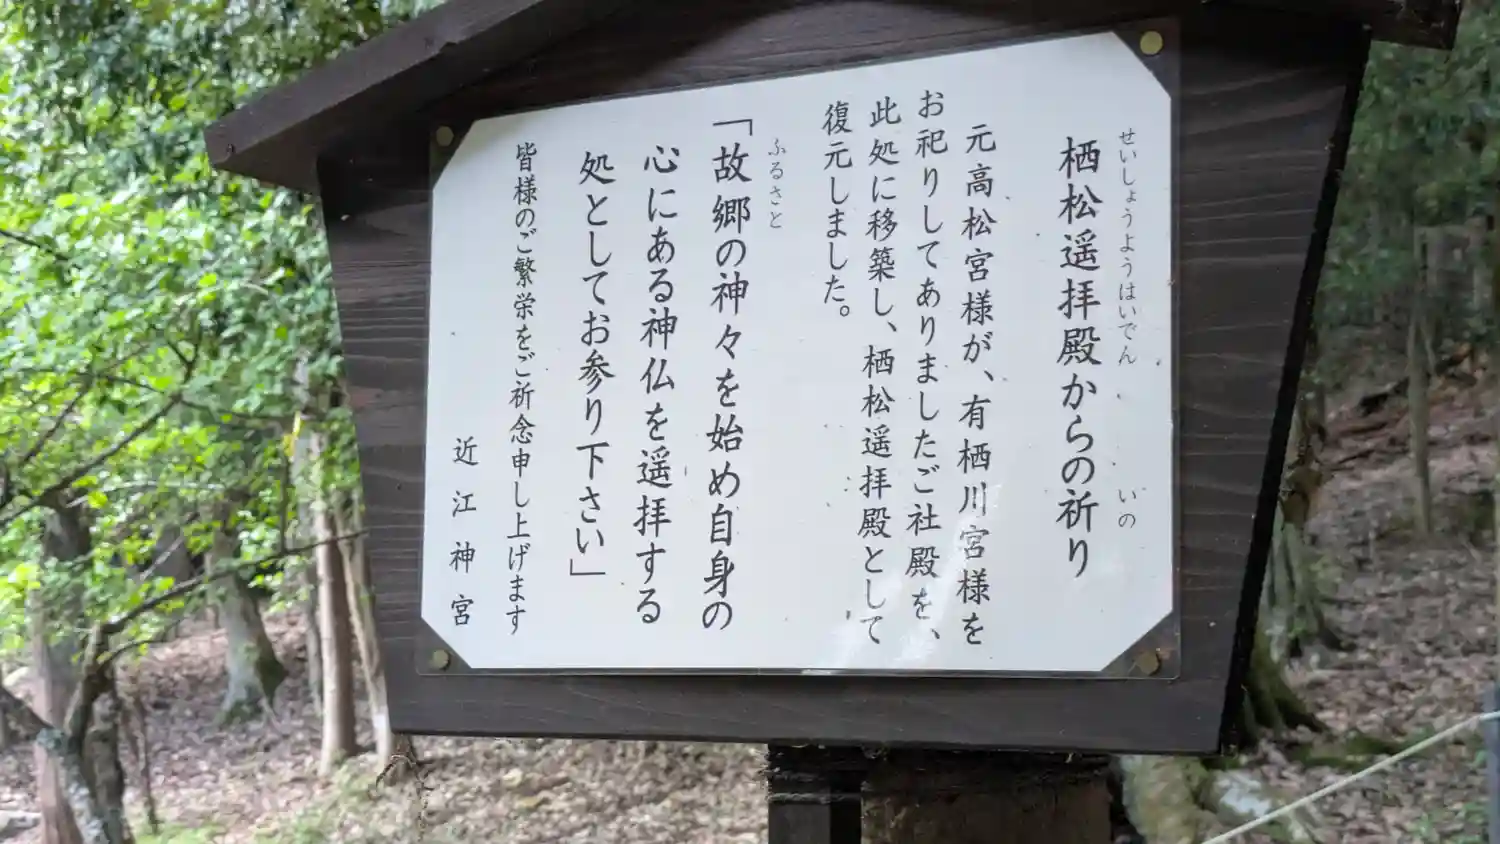 栖松遥拝殿からの祈り
せいしょうようはいでん
いの
元高松宮様が、有栖川宮様を
お祀りしてありましたご社殿を、
此処に移築し、栖松遥拝殿として
復元しました。
ふるさと
「故郷の神々を始め自身の
心にある神仏を遥拝する
処としてお参り下さい」
皆様のご繁栄をご祈念申し上げます
近江神宮